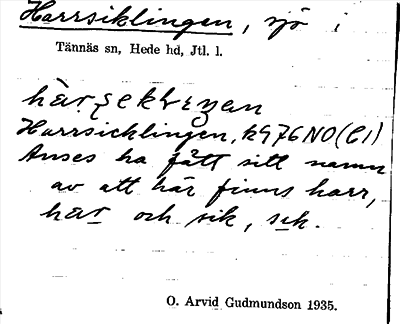 Harrsiklingen, sjö i
Tännäs sn, Hede hd, Jtl. l.
Harrsicklingen, k976NO(C1)
Anses ha fått sitt namn
av att här finns harr,
har och sik, sik.
O. Arvid Gudmundson 1935.